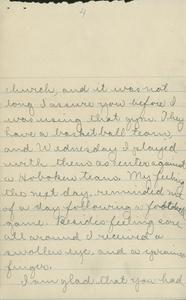 4
church, and it was not
long I assure you before I
was using that gym. They
have a basketball team,
and Wednesday I played
with them as center against
a Hoboken team. My feeling
the next day, reminded me
of a day following a football
game. Besides feeling sore
all around I received a
swollen eye, and a sprained
finger.
I am glad that you had